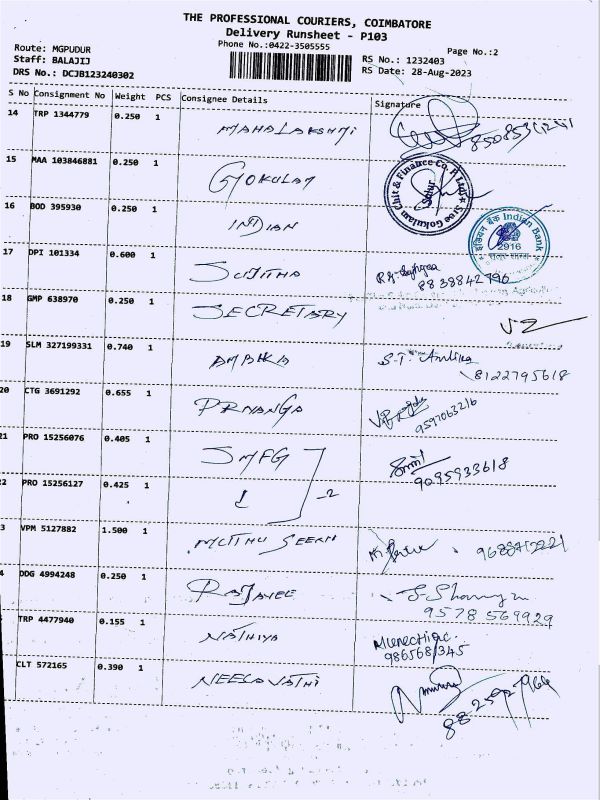 THE PROFESSIONAL COURIERS, COIMBATORE
Delivery Runsheet - P103
Phone No.:0422-3505555
Page No.:2
Route: MGPUDUR
Staff: BALAJIJ
RS No.: 1232403
DRS No.: DCJB123240302
RS Date: 28-Aug-2023
S No Consignment No Weight PCS Consignee Details Signature
14 TRP 1344779 0.250 1 MAHALAKSHMI
15 MAA 103846881 0.250 1 GOKULAM
Sree Gokulam Chit & Finance Co. P. Ltd
16 BOD 395930 0.250 1 INDIAN
इंडियन बैंक Indian Bank
2916
17 DPI 101334 0.600 1 SUJITHA
8838842796
18 GMP 638970 0.250 1 SECRETARY
19 SLM 327199331 0.740 1 AMBIKA S.T. Ambika
8122795618
20 CTG 3691292 0.655 1 PRIYANGA
9597063216
21 PRO 15256076 0.405 1 SMFG
9095933618
2 PRO 15256127 0.425 1 -2
3 VPM 5127882 1.500 1 MUTHU SEERN 9688412221
4 DDG 4994248 0.250 1
9578569929
TRP 4477940 0.155 1 NATHIYA
9865681345
CLT 572165 0.390 1 NEELAVATHI